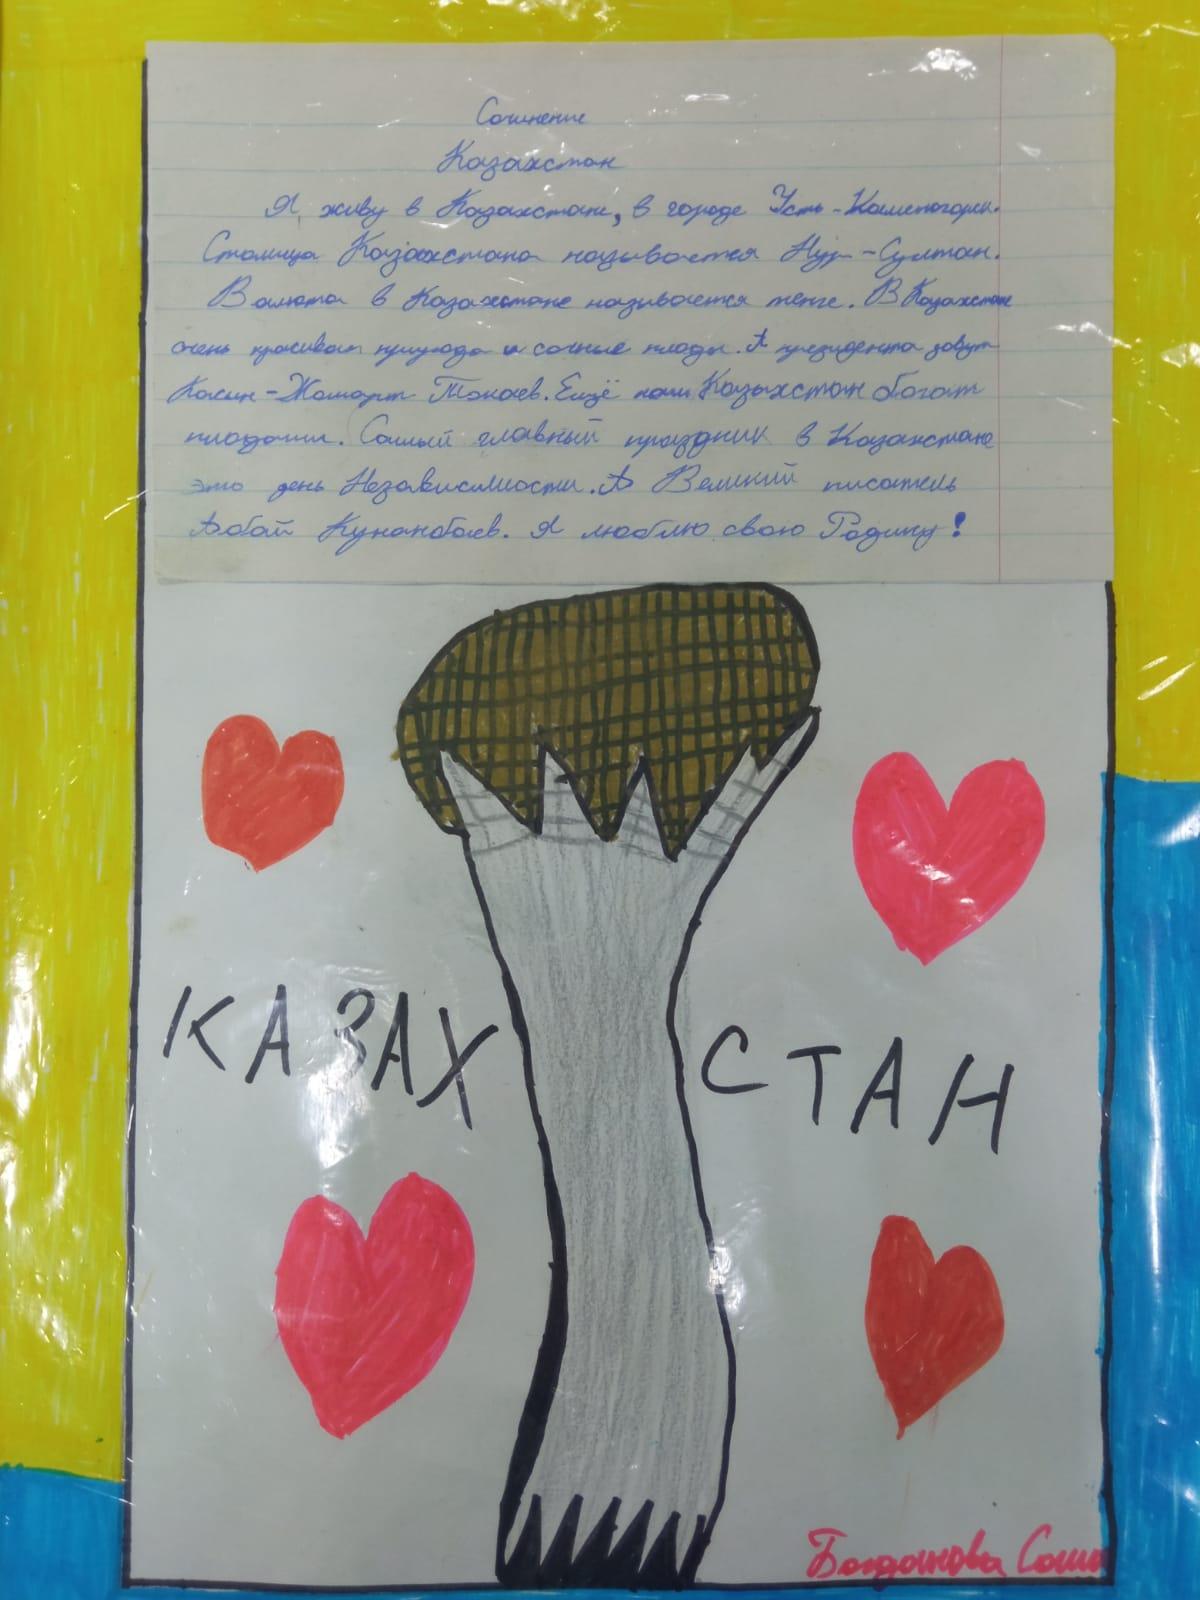 Сочинение
Казахстан
Я живу в Казахстане, в городе Усть-Каменогорск.
Столица Казахстана называется Нур-Султан.
Валюта в Казахстане называется тенге. В Казахстане
очень красивая природа и сочные плоды. А президента зовут
Касым-Жомарт Токаев. Ещё наш Казыхстан богат
плодами. Самый главный праздник в Казахстане
это день Независимости. А Великий писатель
Абай Кунанбаев. Я люблю свою Родину!
КАЗАХ СТАН
Богданова Саша